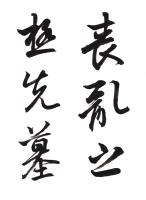 喪亂之
極先墓